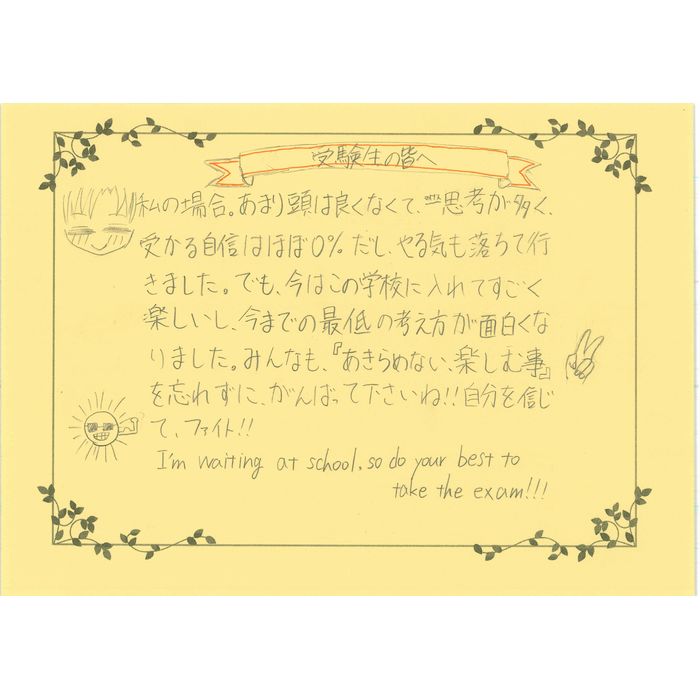 受験生の皆へ
私の場合。あまり頭は良くなくて、一思考が多く、
受かる自信はほぼ0%だし、やる気も落ちて行
きました。でも、今はこの学校に入れてすごく
楽しいし、今までの最低の考え方が面白くな
りました。みんなも、『あきらめない、楽しむ事』
を忘れずに、がんばって下さいね!!自分を信じ
て、ファイト!!
I'm waiting at school, so do your best to
take the exam!!!